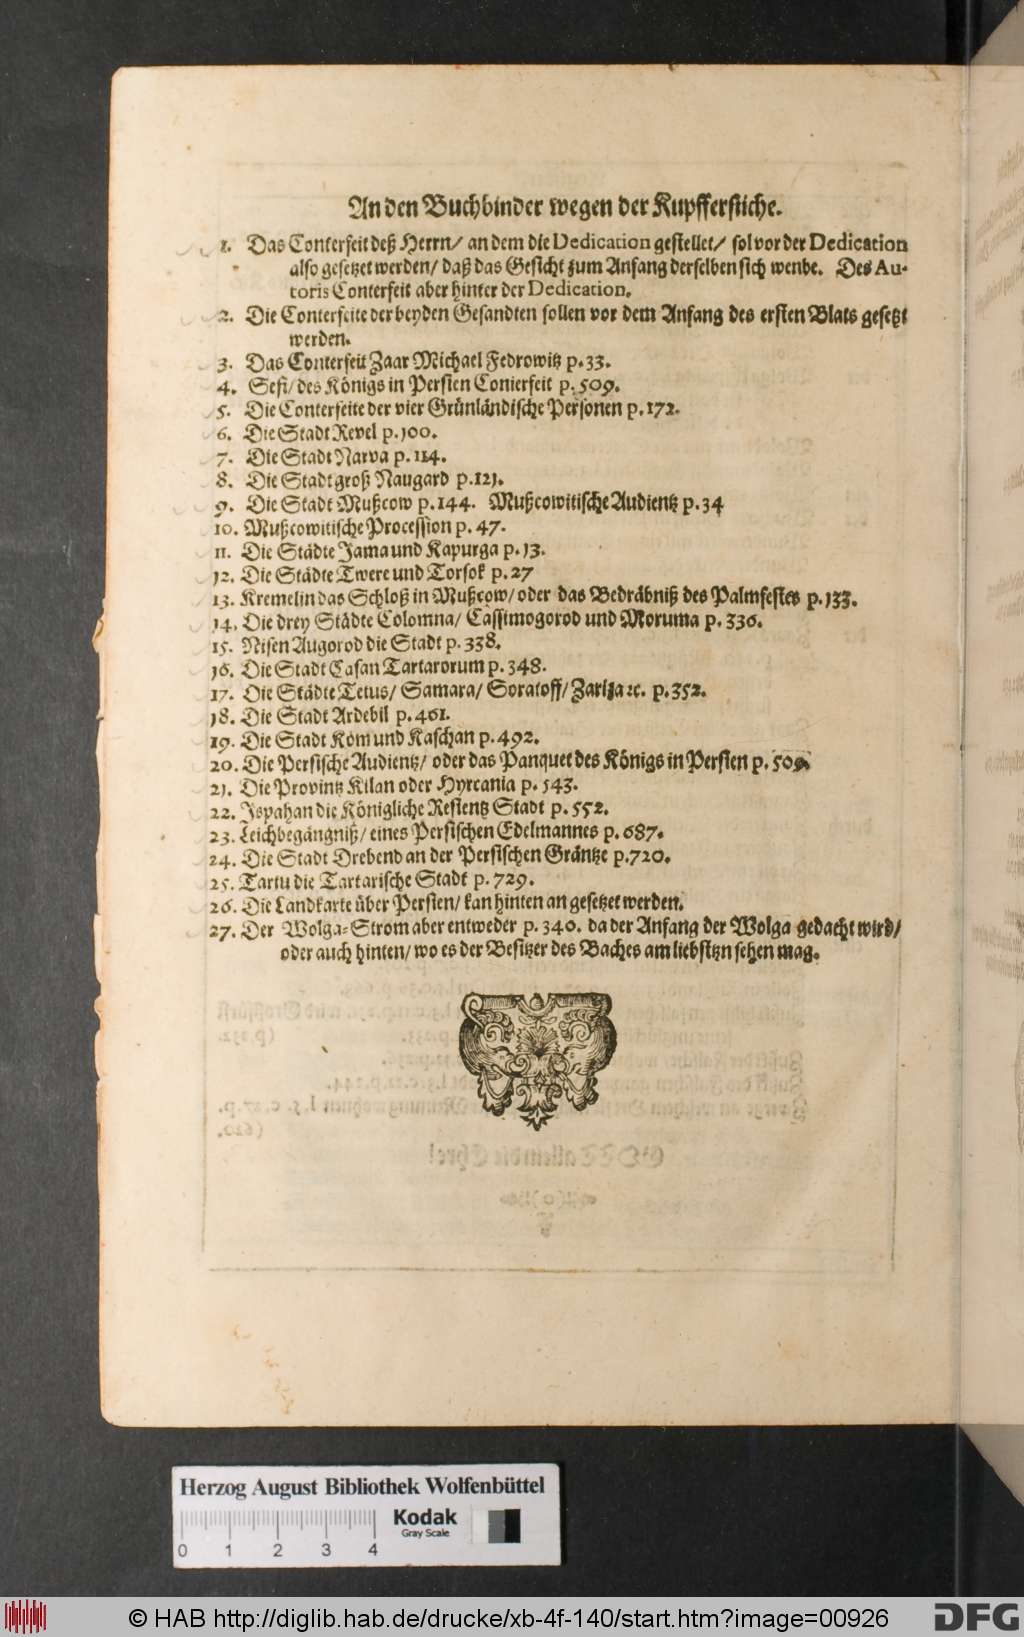 An den Buchbinder wegen der Kupfferstiche.
1. Das Conterfeit deß Herrn/ an dem die Dedication gestellet/ sol vor der Dedication
also gesetzet werden/ daß das Gesicht zum Anfang derselben sich wende. Des Au-
toris Conterfeit aber hinter der Dedication.
2. Die Conterfeite der beyden Gesandten sollen vor dem Anfang des ersten Blats gesetzt
werden.
3. Das Conterfeit Zaar Michael Fedrowitz p. 33.
4. Sefi/ des Königs in Persien Conterfeit p. 509.
5. Die Conterfeite der vier Grünländische Personen p. 172.
6. Die Stadt Revel p. 100.
7. Die Stadt Narva p. 114.
8. Die Stadt groß Naugard p. 121.
9. Die Stadt Mußcow p. 144. Mußcowitische Audientz p. 34
10. Mußcowitische Procession p. 47.
11. Die Städte Jama und Kapurga p. 13.
12. Die Städte Twere und Torsok p. 27
13. Kremelin das Schloß in Mußcow/ oder das Bedräbniß des Palmfestes p. 133.
14. Die drey Städte Colomna/ Cassimogorod und Moruma p. 336.
15. Nisen Augorod die Stadt p. 338.
16. Die Stadt Casan Tartarorum p. 348.
17. Die Städte Tetus/ Samara/ Soratoff/ Zariza ꝛc. p. 352.
18. Die Stadt Ardebil p. 461.
19. Die Stadt Kom und Kaschan p. 492.
20. Die Persische Audientz/ oder das Panquet des Königs in Persien p. 509.
21. Die Provintz Kilan oder Hyrcania p. 543.
22. Ispahan die Königliche Resientz Stadt p. 552.
23. Leichbegängniß/ eines Persischen Edelmannes p. 687.
24. Die Stadt Drebend an der Persischen Gräntze p. 720.
25. Tartu die Tartarische Stadt p. 729.
26. Die Landkarte über Persien/ kan hinten an gesetzet werden.
27. Der Wolga-Strom aber entweder p. 340. da der Anfang der Wolga gedacht wird/
oder auch hinten/ wo es der Besitzer des Baches am liebstzn sehen mag.
Herzog August Bibliothek Wolfenbüttel
Kodak
Gray Scale
0 1 2 3 4
© HAB http://diglib.hab.de/drucke/xb-4f-140/start.htm?image=00926
DFG